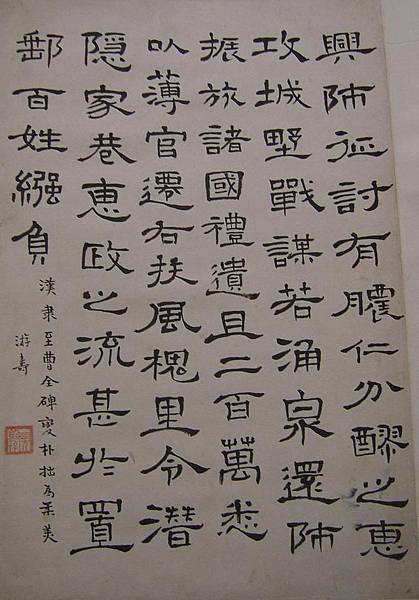 興師征討有膿仁分醪之惠
攻城野戰謀若涌泉還師
振旅諸國禮遺且二百萬悉
以薄官遷右扶風槐里令潛
隱家巷惠政之流甚於置
郵百姓繦負
漢隶至曹全碑變朴拙為柔美
游壽